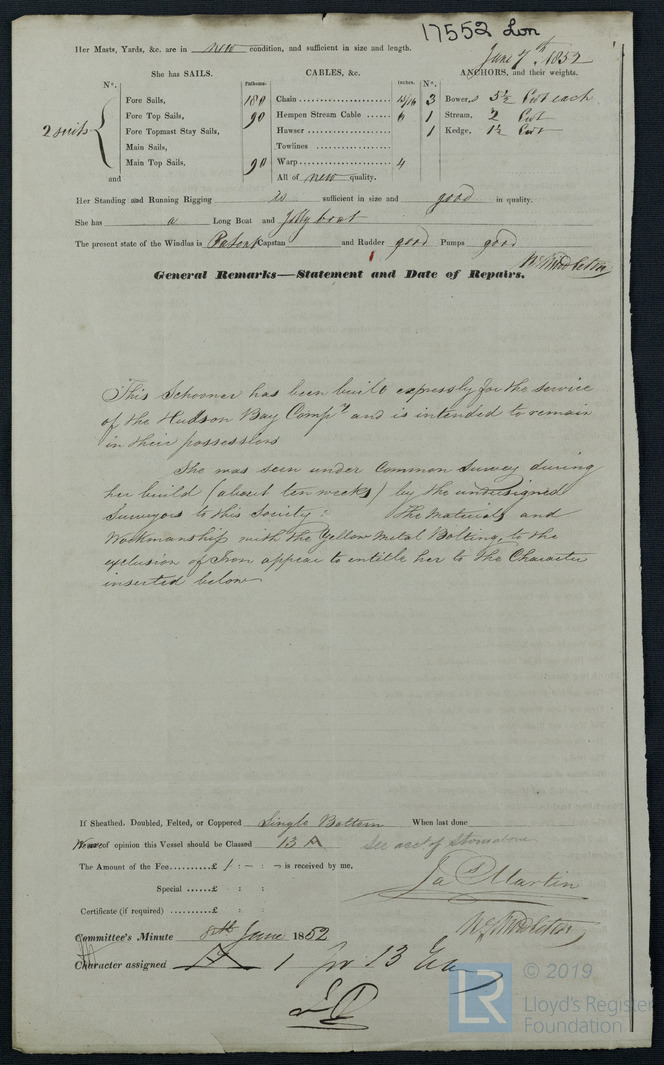 17552 Lon
Her Masts, Yards, &c. are in new condition, and sufficient in size and length.
June 7th. 1852
She has SAILS. CABLES, &c. ANCHORS, and their weights.
N°. Fathoms. Inches. N°.
Fore Sails, 180 Chain 15/16 3 Bowers 5½ Cwt each
2 suits Fore Top Sails, 90 Hempen Stream Cable 6 1 Stream, 2 Cwt
Fore Topmast Stay Sails, Hawser 1 Kedge, 1½ Cwt
Main Sails, Towlines
Main Top Sails, 90 Warp 4
and All of new quality.
Her Standing and Running Rigging is sufficient in size and good in quality.
She has a Long Boat and Jolly boat
The present state of the Windlas is Patent Capstan and Rudder good Pumps good
Wm Middleton
General Remarks—Statement and Date of Repairs.
This Schooner has been built expressly for the service
of the Hudson Bay Compy and is intended to remain
in their possession
She was seen under Common Survey during
her build (about ten weeks) by the undersigned
Surveyors to this Society: The Materials and
Workmanship with the Yellow Metal Bolting, to the
exclusion of Iron appear to entitle her to the Character
inserted below
If Sheathed, Doubled, Felted, or Coppered Single Bottom When last done
We are of opinion this Vessel should be Classed 13 A
See acct of
The Amount of the Fee..........£ 1 : – : – is received by me,
Jas Martin
Special ......£ : :
Certificate (if required) ........£ : :
Wm Middleton
Committee's Minute 8th June 1852
Character assigned A 1 for 13
© 2019
LR
Lloyd's Register
Foundation